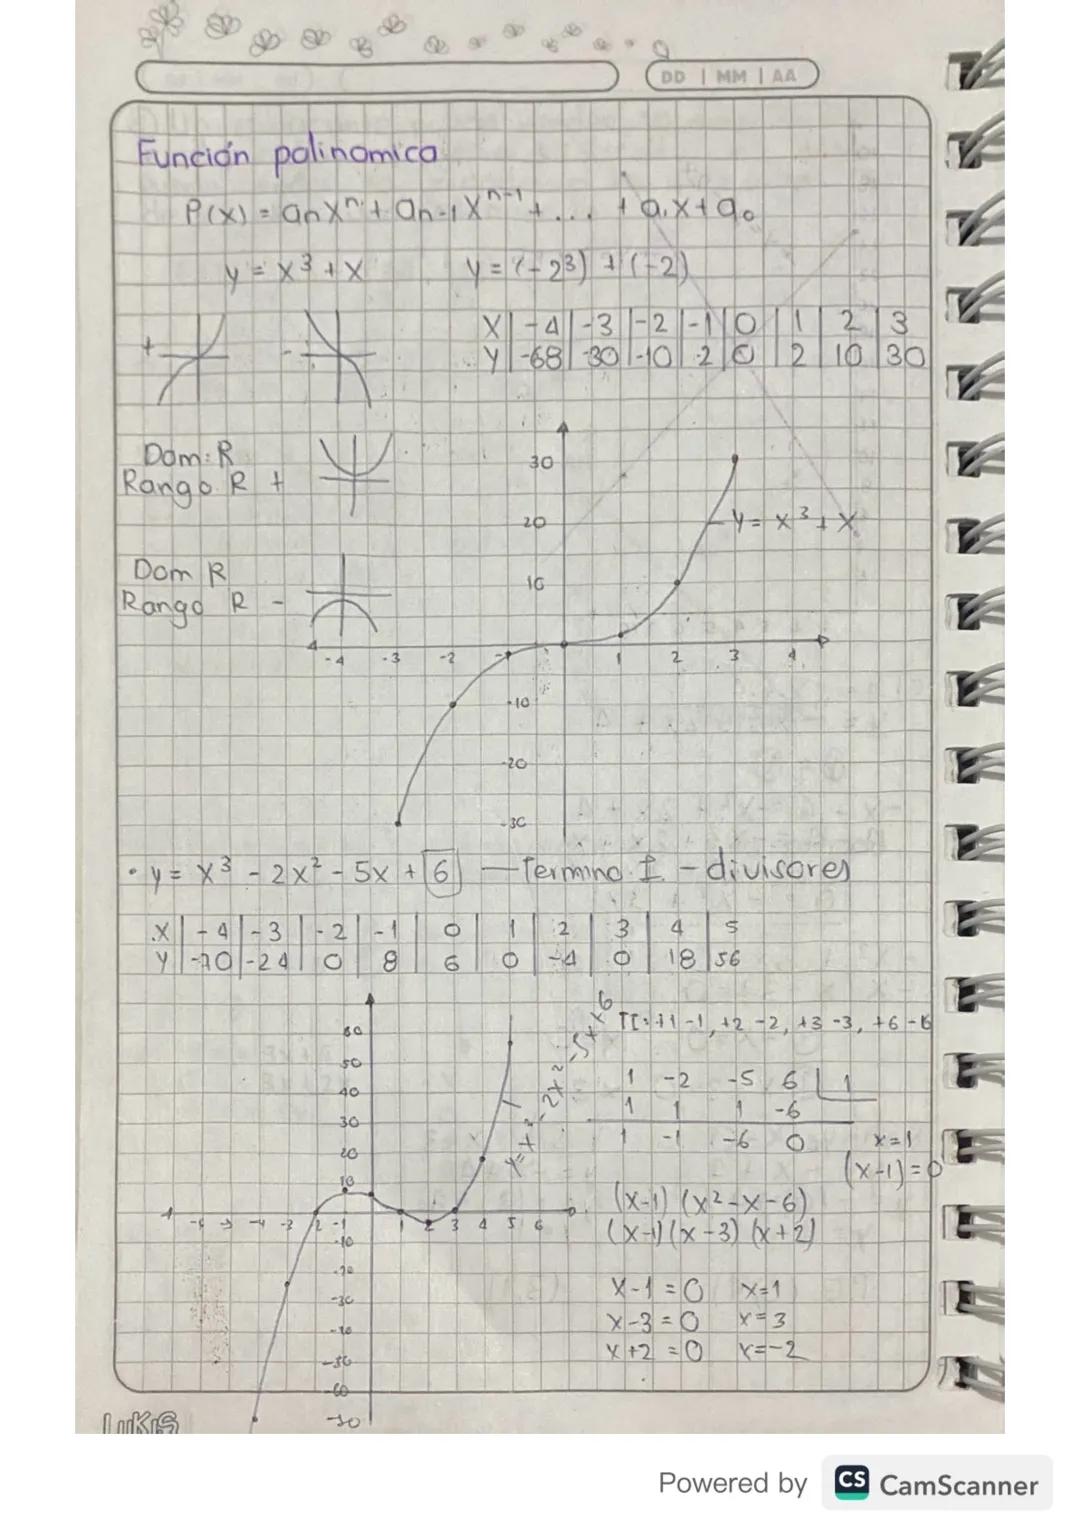 DD | MM | AA
Función polinomica
P(x) = anx^n + an-1x^n-1 + ... + a1x + a0
y = x³ + x
y = (-2³) + (-2)
X | -4 | -3 | -2 | -1 | 0 | 1 | 2 | 3
Y | -68 | -30 | -10 | -2 | 0 | 2 | 10 | 30
+ -
Dom: R
Rango R +
Dom R
Rango R -
30
20
10
y = x³ + x
-4 -3 -2 -1 1 2 3 4
-10
-20
-30
• y = x³ - 2x² - 5x + 6 — Termino I. - divisores
X | -4 | -3 | -2 | -1 | 0 | 1 | 2 | 3 | 4 | 5
Y | -70 | -24 | 0 | 8 | 6 | 0 | -4 | 0 | 18 | 56
TI: +1 -1, +2 -2, +3 -3, +6 -6
60
50
40
30
20
10
-4 -3 -2 -1 1 2 3 4 5 6
-10
-20
-30
-50
-60
-70
1 -2 -5 6 | 1
1 1 1 -6
1 -1 -6 0
x=1
(x-1)=0
(x-1) (x²-x-6)
(x-1)(x-3) (x+2)
x-1 = 0 x=1
x-3 = 0 x=3
x+2 = 0 x=-2
LUKIS
Powered by CS CamScanner